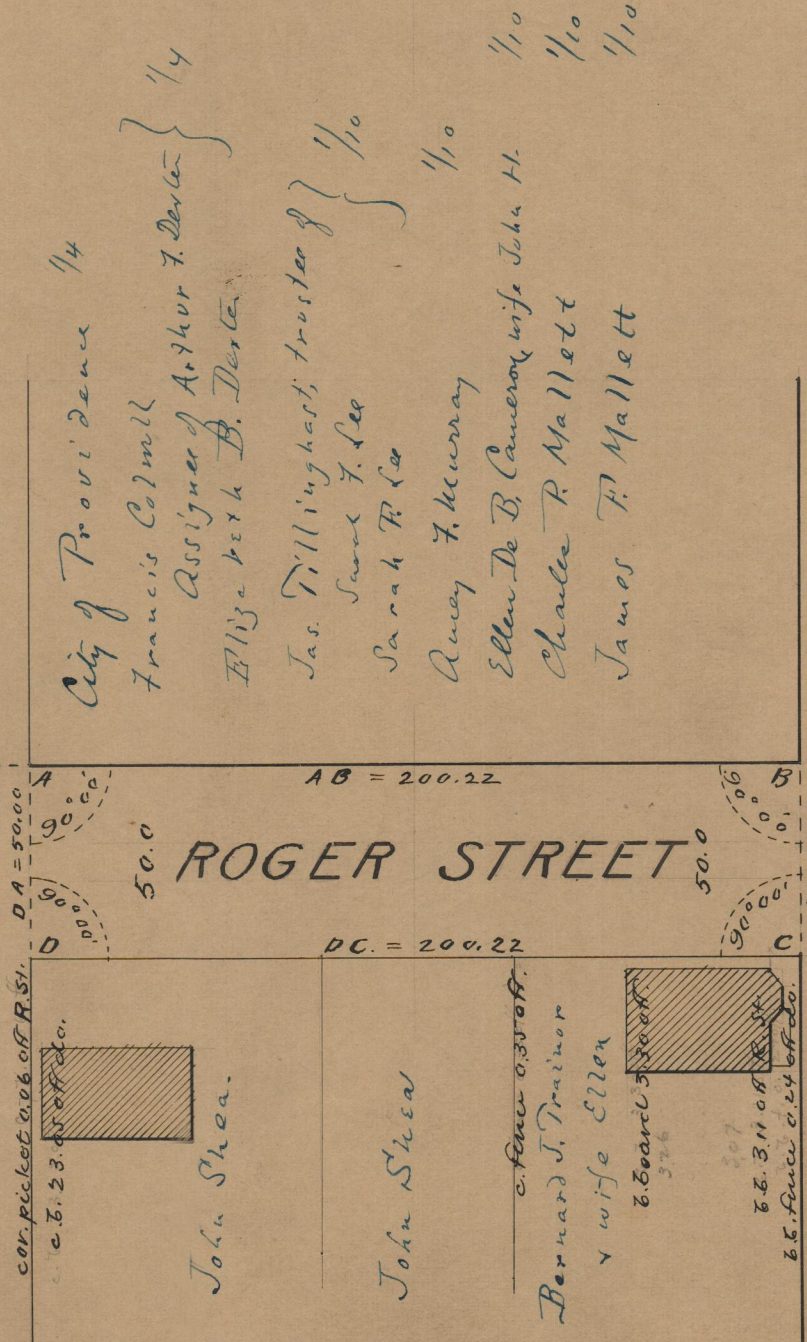 City of Providence 1/4
Francis Colwell
Assignee of Arthur F. Dexter } 1/4
Elizabeth B. Dexter
Jas. Tillinghast, trustee of } 1/10
Sarah F. Lee
Sarah F. Lee
Amey F. Murray 1/10
Ellen De B. Cameron, wife John H. 1/10
Charles P. Mallett 1/10
James F. Mallett 1/10
DA = 50.00
A
90° 00'
AB = 200.22
90° 00'
B
50.0
ROGER STREET
50.0
D
90° 00'
DC. = 200.22
90° 00'
C
cor. picket 0.06 off R. St.
c.b. 23.05 off do.
John Shea.
John Shea
c. fence 0.35 off.
Bernard J. Trainor
& wife Ellen
b. board 3.30 off.
b.b. 3.11 off R. St.
b.b. fence 0.24 off do.